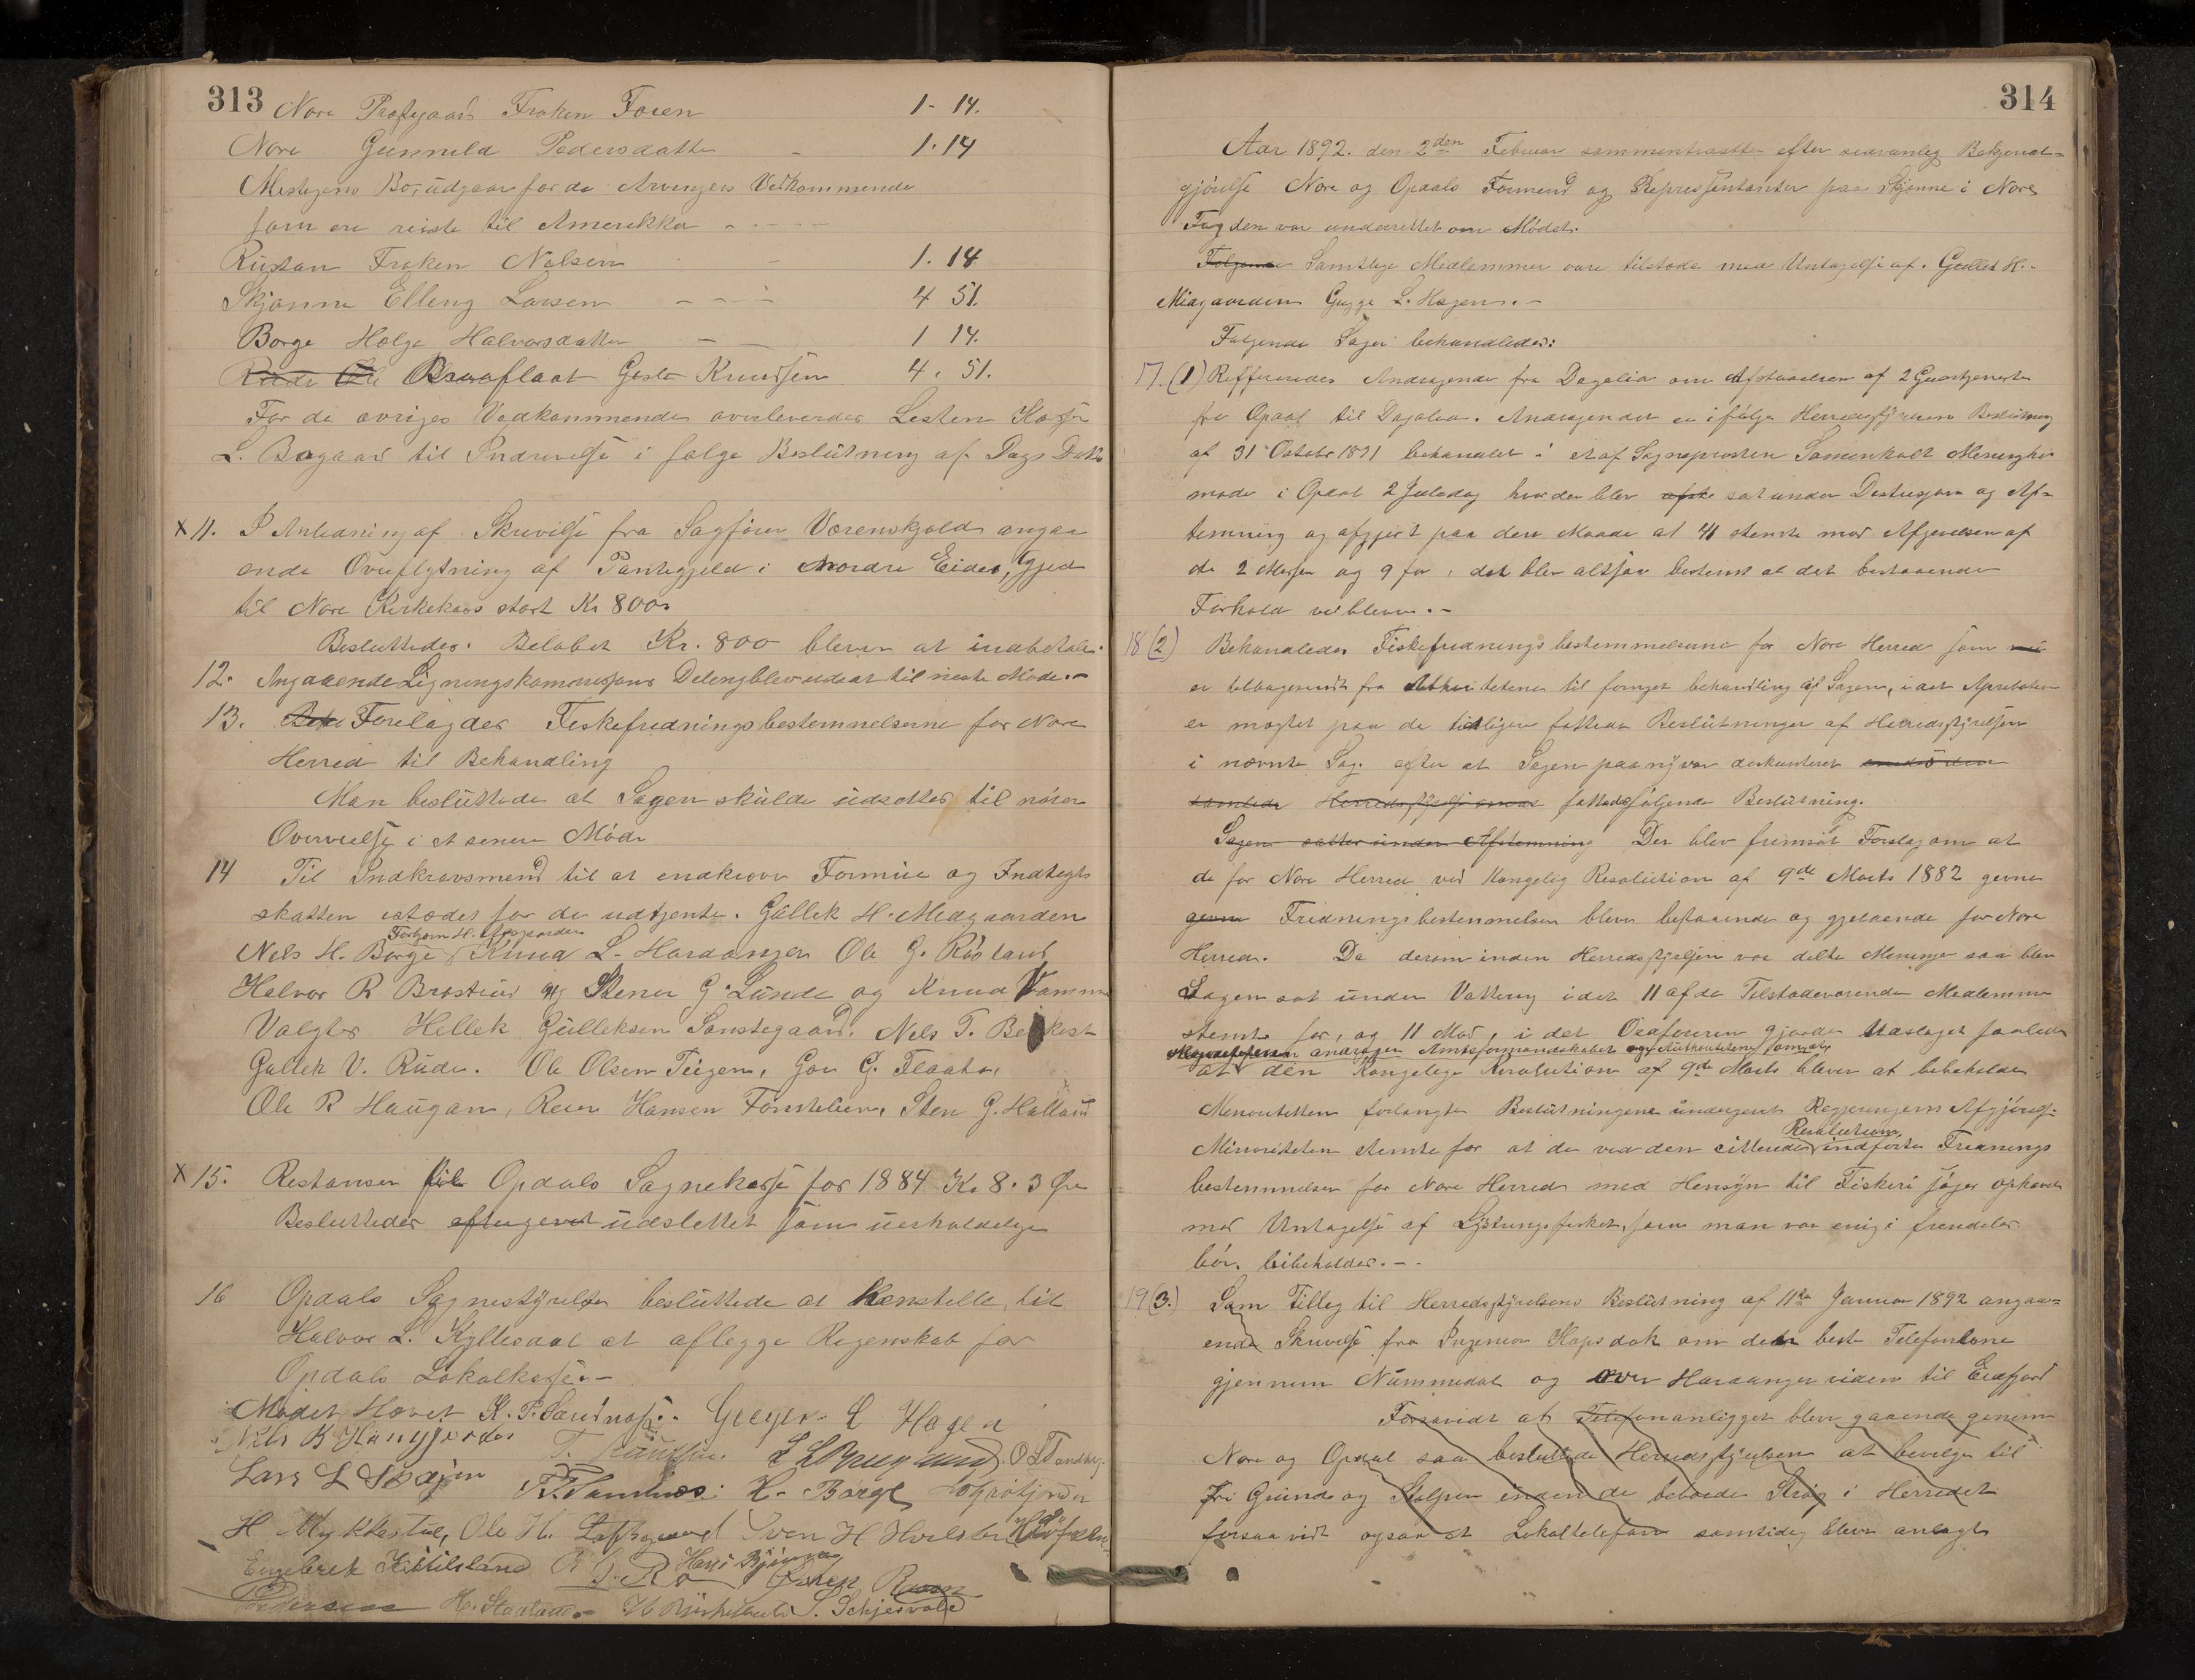 313
Nore Præstgaard Frøken Foren 1. 14.
Nore Gunnild Pedersdatter - 1. 14
Mestegens Bo, udgaar for de Arvingers Vedkommende
som ere reiste til Amerikka - - - -
Rustan Frøken Nelsen - 1. 14
Skjønne Elleng Larsen - - - 4 51.
Borge Helge Halvorsdatter - - 1 14.
Rude Ole Braaflaat Gesle Knudsen 4. 51.
For de øvriges Vedkommende overleverdes Listen Kasserer
L. Bagaard til Inddrivelse i følge Beslutning af Dags Dato
X 11. I Anledning af Skrivelse fra Sagfører Værenskjold angaa
ende Overflytning af Pantegjeld i nordre Eides, Gjed
til Nore Kirkekass stort Kr 800.
Besluttedes: Beløbet Kr. 800 bliver at indbetale.
12. Angaaende Ligningskommissions Deleng blev udsat til næste Møde.-
13. Forelagdes Fiskefredningsbestemmelserne for Nore
Herred til Behandling
Man besluttede at Sagen skulde udsættes til nærer
Overveielse i et senere Møde
14 Til Indkrævsmend til at indkræve Formue og Indtægts
skatten istedet for de udtjente. Gullek H. Medgaarden
Torbjørn H.
Nels H. Borge Knud L. Hardanger Ole G. Røsland
Halvor R Brøstrud og Stener G. Lunde og Knud Vamm
Valgtes Hellek Gulleksen Sønstegaard. Nels T. Bekkest
Gullek V. Rude. Ole Olsen Teigen, Gov G. Flaata,
Ole R Haugan, Reier Hansen Fønstelien, Sten G. Halland
X 15. Restanser til Opdals Sognekasse for 1884 Kr 8. 3 Øre
Besluttedes eftergivet udslettet som uerholdelige
16 Opdals Sognestyrelse besluttede at henstelle til
Halvor L. Kyllesdal at aflegge Regenskab for
Opdals Lokalkasse.-
Mødet Hævet K. P. Sandnæss. Gregers L Hagen
Nels B T. L L O. T. Sandberg.
Lars L Skagen T. T. K. Borge
H Mykkestue, Ole H. L Bagaard Sven H
Engebrek Kittilsland Hans Bjønneg
H. Skatland S. Schjesvold
314
Aar 1892. den 2den Februar sammentraatte efter sedvanlig Bekjendt-
gjørelse Nore og Opdals Formend og Representanter paa Skjønne i Nore
Fogden var underrettet om Mødet.
Følgende Samtlige Medlemmer vare tilstede med Undtagelse af. Gullek H.-
Miagaarden Gugge L. Hagen.-
Følgende Sager behandledes:
17. (1) Refferedes Andragende fra Dagalid om Afstaaelsen af 2 Gudstjenester
fra Opdal til Dagalid. Andragendet er ifølge Herredsstyrelsens Beslutning
af 31 Octobr 1891 behandlet i et af Sognepresten Samenkalt Menigheds
møde i Opdal 2 Juledag hvor den blev sat under Diskusjon og Af-
temning og afgjort paa den Maade at 41 stemte mod Afgivelsen af
de 2 Messer og 9 for, det blev altsaa bestemt at det bestaaende
Forhold vedblever.-
18 (2) Behandledes Fiskefrednings bestemmelserne for Nore Herred som
er tilbagesendt fra Authoritetene til fornyet behandling af Sagen, idet Aprobation
er nægtet paa de tidligere fattede Beslutninger af Herredsstyrelsen
i nevnte Sag. efter at Sagen paa ny var diskunteret
samlede Herredsstyrelse fattedes følgende Beslutning.
Sagen sattes under Afstemning Der blev fremsat Forslag om at
de for Nore Herred ved Kongelig Resolution af 9de Marts 1882 givne
givne Fredningsbestemmelser bliver bestaaende og gjeldende for Nore
Herred. Da derom inden Herredsstyrelsen var delte Meninger saa blev
Sagen sat under Vottering idet 11 af de Tilstedeværende Medlemmer
stemte for, og 11 Mod, i det Ordføreren gjorde Udslaget saaledes
andrager Amtsformandskabet og Authoriteterne om at
at den Kongelige Resolution af 9de Marts bliver at bebeholde
Menoriteten forlangte Beslutningene undergivet Regjeringens Afgjørelse.
Resolution
Minoriteten stemte for at de ved den citterede indførte Frednings
bestemmelser for Nore Herred med Hensyn til Fiskeri søges ophævet
med Undtagelse af Lystringsfisket, som man var enig i fremdeles
bør. bibeholdes.--
19 (3.) Som Tilleg til Herredsstyrelsens Beslutning af 11te Januar 1892 angaa-
ende Skrivelse fra Ingeniør Hopstok om den beste Telefonlinie
gjennem Nummedal og over Hardangerviden til Eidfjord
Forsavidt at Telefonanlegget bliver gaaende genem
Nore og Opdal saa besluttede Herredsstyrelsen at bevilge til
Fri Grund og Stolper inden de beboede Strøg i Herredet
forsaavidt ogsaa et Lokaltelefon samtidig bliver anlagt